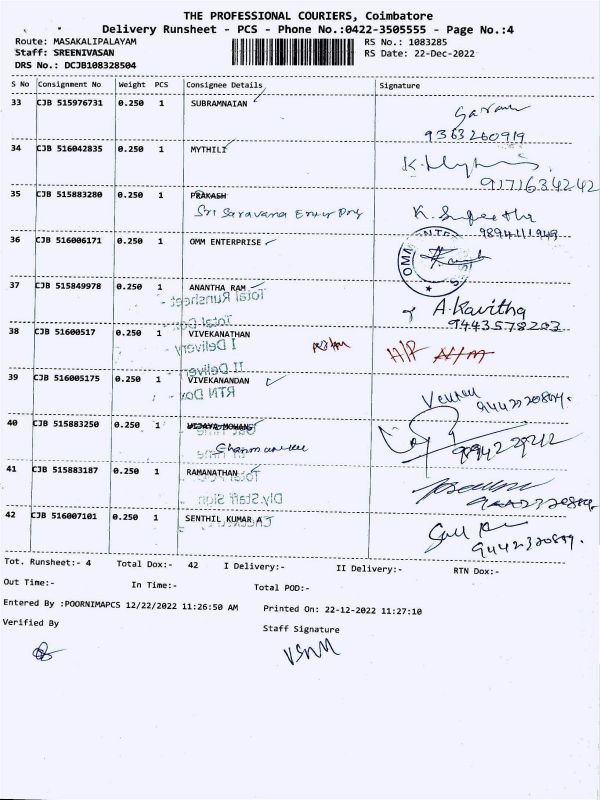 THE PROFESSIONAL COURIERS, Coimbatore
Delivery Runsheet - PCS - Phone No.:0422-3505555 - Page No.:4
Route: MASAKALIPALAYAM RS No.: 1083285
Staff: SREENIVASAN RS Date: 22-Dec-2022
DRS No.: DCJB108328504
S No Consignment No Weight PCS Consignee Details Signature
33 CJB 515976731 0.250 1 SUBRAMNAIAN
9363260919
34 CJB 516042835 0.250 1 MYTHILI
9171634242
35 CJB 515883280 0.250 1 PRAKASH
Sri Saravana
9894111949
36 CJB 516006171 0.250 1 OMM ENTERPRISE
OMM
37 CJB 515849978 0.250 1 ANANTHA RAM
Total Runsheet
A. Kavitha
9443578203
38 CJB 51600517 0.250 1 VIVEKANATHAN
I Delivery
II Delivery
39 CJB 516005175 0.250 1 VIVEKANANDAN
RTN Dox
40 CJB 515883250 0.250 1 VIJAYA MOHAN
41 CJB 515883187 0.250 1 RAMANATHAN
Dly.Staff Sign
42 CJB 516007101 0.250 1 SENTHIL KUMAR A
Tot. Runsheet:- 4 Total Dox:- 42 I Delivery:- II Delivery:- RTN Dox:-
Out Time:- In Time:- Total POD:-
Entered By :POORNIMAPCS 12/22/2022 11:26:50 AM Printed On: 22-12-2022 11:27:10
Verified By Staff Signature